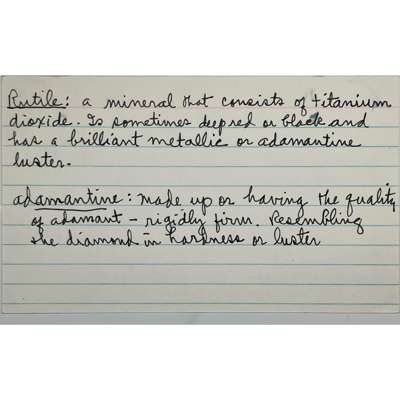 Rutile: a mineral that consists of titanium
dioxide. Is sometimes deep red or black and
has a brilliant metallic or adamantine
luster.
adamantine: made up or having the quality
of adamant - rigidly firm. Resembling
the diamond in hardness or luster